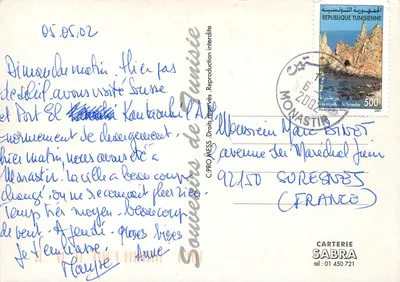 05.05.02
Dimanche matin. Hier pas
de soleil avons visité Sousse
et Port El Kantaoui
Enormement de changement.
hier matin nous avons été à
Monastir. La ville a beaucoup
changé, on ne reconnait plus rien
Temps très moyen. Beaucoup
de vent. A jeudi. Grosses bises
Je t'embrasse. Anne
Souvenirs de Tunisie
C.PRO.MESS. Droits réservés. Reproduction interdite
REPUBLIQUE TUNISIENNE
500
MONASTIR
2002
Monsieur Marc BINET
avenue du Maréchal Juin
92150 SURESNES
(FRANCE)
CARTERIE
SABRA
tél : 01 450 721